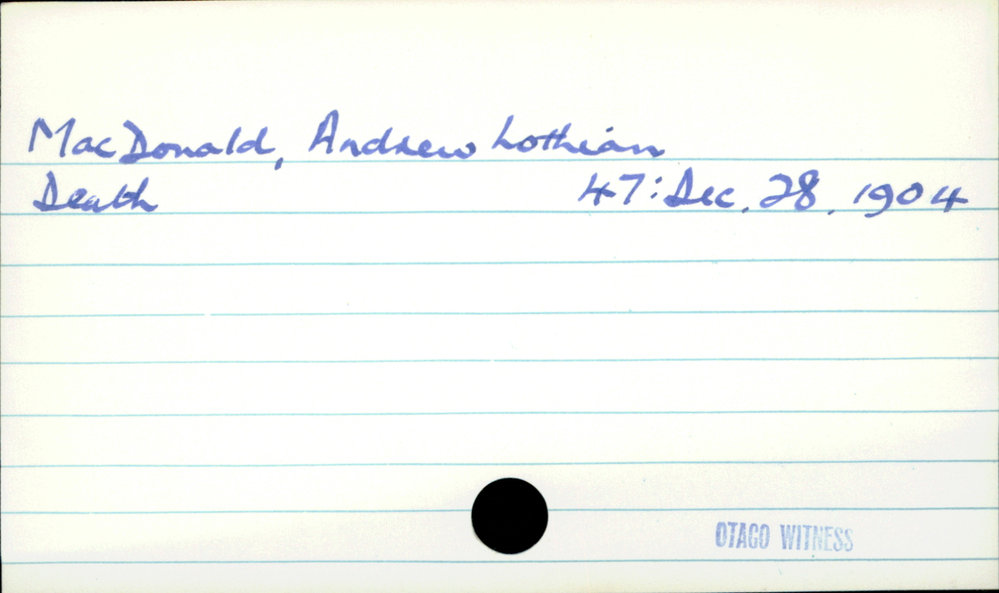 MacDonald, Andrew Lothian
Death 47: Dec. 28, 1904
OTAGO WITNESS